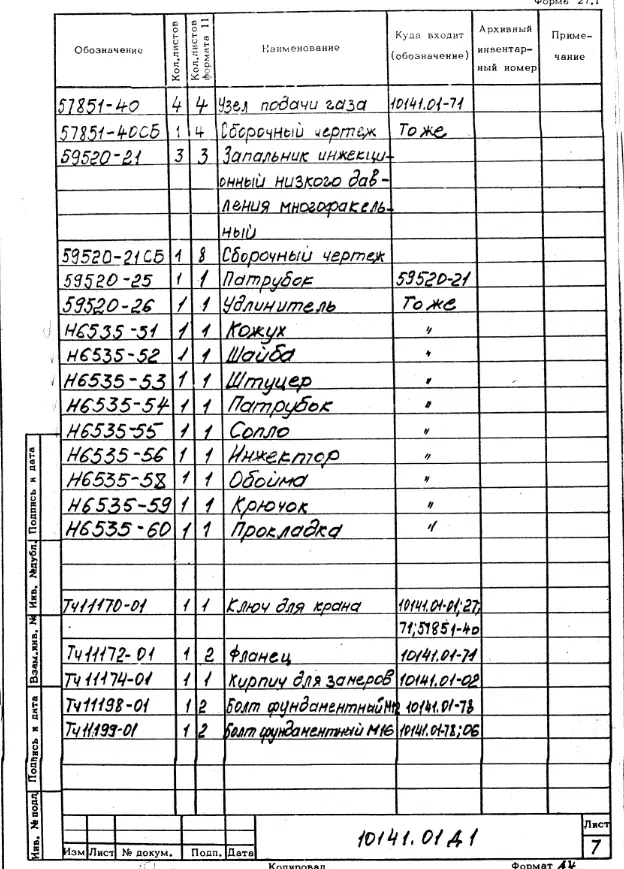 Форма 27.1
Обозначение Кол.листов Кол.листов формата 11 Наименование Куда входит (обозначение) Архивный инвентарный номер Примечание
57851-40 4 4 Узел подачи газа 10141.01-71
57851-40СБ 1 4 Сборочный чертеж То же
59520-21 3 3 Запальник инжекци-
онный низкого дав-
ления многофакель-
ный
59520-21СБ 1 8 Сборочный чертеж
59520-25 1 1 Патрубок 59520-21
59520-26 1 1 Удлинитель То же
Н6535-51 1 1 Кожух "
Н6535-52 1 1 Шайба "
Н6535-53 1 1 Штуцер "
Н6535-54 1 1 Патрубок "
Н6535-55 1 1 Сопло "
Н6535-56 1 1 Инжектор "
Н6535-58 1 1 Обойма "
Н6535-59 1 1 Крючок "
Н6535-60 1 1 Прокладка "
Тч11170-01 1 1 Ключ для крана 10141.01-01;27;
71;57851-40
Тч11172-01 1 2 Фланец 10141.01-71
Тч11174-01 1 1 Кирпич для замеров 10141.01-02
Тч11198-01 1 2 Болт фундаментный М12 10141.01-78
Тч11199-01 1 2 Болт фундаментный М16 10141.01-78;06
Инв. № подл.
Подпись и дата
Взам.инв. №
Инв. №дубл.
Подпись и дата
Изм Лист № докум. Подп. Дата
10141.01Д1
Лист
7
Копировал Формат А4